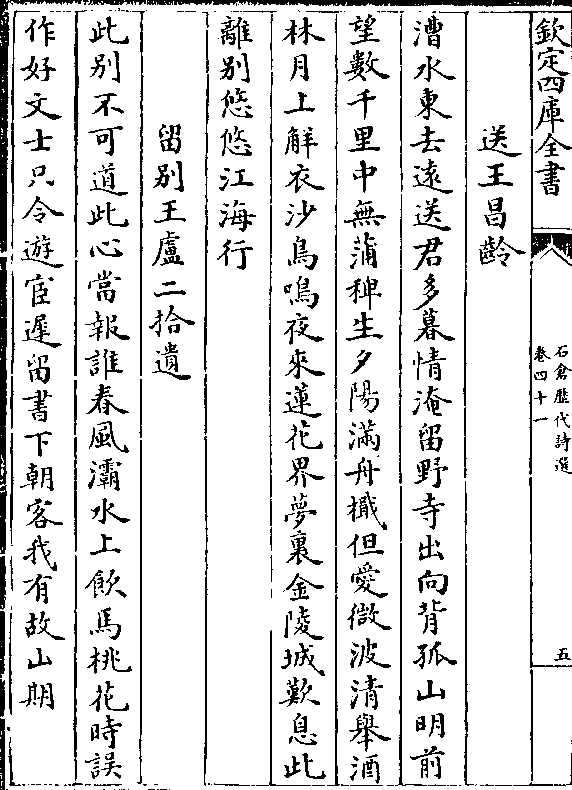 欽定四庫全書
石倉歷代詩選
卷四十一
五
送王昌齡
漕水東去遠送君多暮情淹留野寺出向背孤山明前
望數千里中無蒲稗生夕陽滿舟檝但愛微波清舉酒
林月上解衣沙鳥鳴夜來蓮花界夢裏金陵城歎息此
離別悠悠江海行
留別王盧二拾遺
此別不可道此心當報誰春風灞水上飲馬桃花時誤
作好文士只令遊宦遲留書下朝客我有故山期